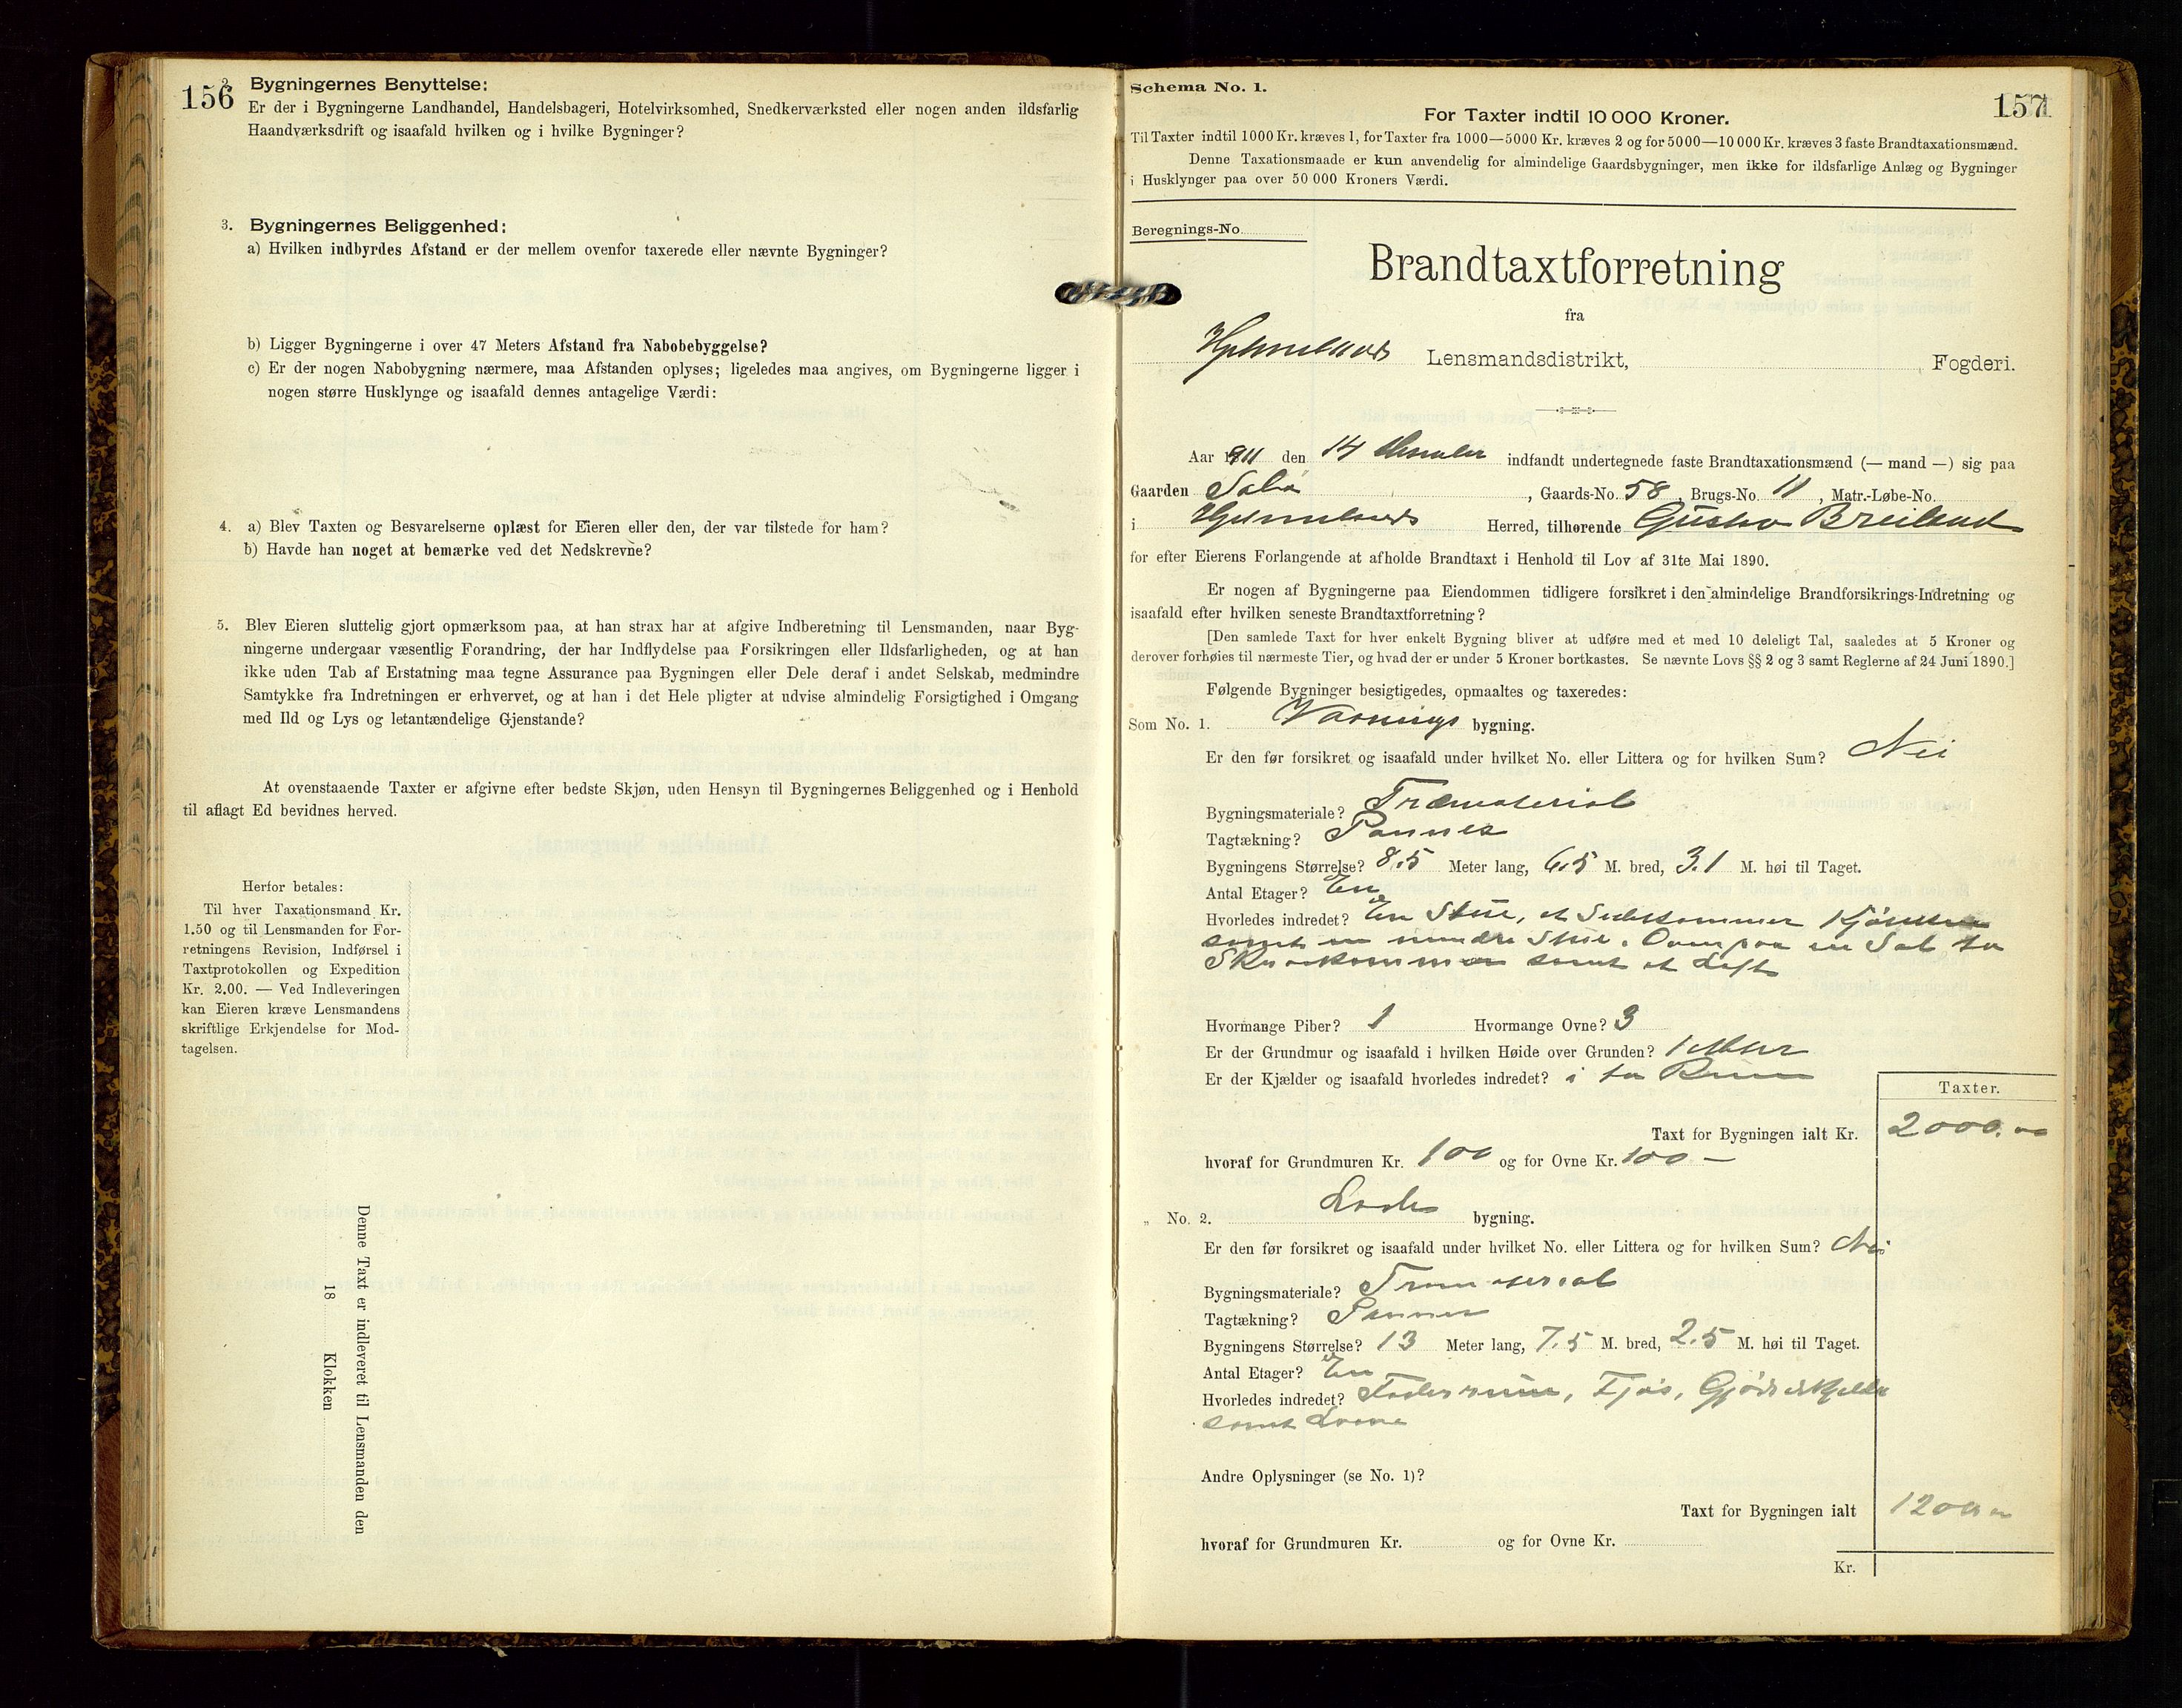 156
2. Bygningernes Benyttelse:
Er der i Bygningerne Landhandel, Handelsbageri, Hotelvirksomhed, Snedkerværksted eller nogen anden ildsfarlig
Haandværksdrift og isaafald hvilken og i hvilke Bygninger?
3. Bygningernes Beliggenhed:
a) Hvilken indbyrdes Afstand er der mellem ovenfor taxerede eller nævnte Bygninger?
b) Ligger Bygningerne i over 47 Meters Afstand fra Nabobebyggelse?
c) Er der nogen Nabobygning nærmere, maa Afstanden oplyses; ligeledes maa angives, om Bygningerne ligger i
nogen større Husklynge og isaafald dennes antagelige Værdi:
4. a) Blev Taxten og Besvarelserne oplæst for Eieren eller den, der var tilstede for ham?
b) Havde han noget at bemærke ved det Nedskrevne?
5. Blev Eieren sluttelig gjort opmærksom paa, at han strax har at afgive Indberetning til Lensmanden, naar Byg-
ningerne undergaar væsentlig Forandring, der har Indflydelse paa Forsikringen eller Ildsfarligheden, og at han
ikke uden Tab af Erstatning maa tegne Assurance paa Bygningen eller Dele deraf i andet Selskab, medmindre
Samtykke fra Indretningen er erhvervet, og at han i det Hele pligter at udvise almindelig Forsigtighed i Omgang
med Ild og Lys og letantændelige Gjenstande?
At ovenstaaende Taxter er afgivne efter bedste Skjøn, uden Hensyn til Bygningernes Beliggenhed og i Henhold
til aflagt Ed bevidnes herved.
Herfor betales:
Til hver Taxationsmand Kr.
1.50 og til Lensmanden for For-
retningens Revision, Indførsel i
Taxtprotokollen og Expedition
Kr. 2.00. — Ved Indleveringen
kan Eieren kræve Lensmandens
skriftlige Erkjendelse for Mod-
tagelsen.
Denne Taxt er indleveret til Lensmanden den
18 Klokken
Schema No. 1.
157
For Taxter indtil 10 000 Kroner.
Til Taxter indtil 1000 Kr. kræves 1, for Taxter fra 1000—5000 Kr. kræves 2 og for 5000—10 000 Kr. kræves 3 faste Brandtaxationsmænd.
Denne Taxationsmaade er kun anvendelig for almindelige Gaardsbygninger, men ikke for ildsfarlige Anlæg og Bygninger
i Husklynger paa over 50 000 Kroners Værdi.
Beregnings-No.
Brandtaxtforretning
fra
Hjelmelands Lensmandsdistrikt, Fogderi.
Aar 1911 den 14 indfandt undertegnede faste Brandtaxationsmænd (— mand —) sig paa
Gaarden , Gaards-No. 58, Brugs-No. 11, Matr.-Løbe-No.
i Hjelmelands Herred, tilhørende Gustav Breiland
for efter Eierens Forlangende at afholde Brandtaxt i Henhold til Lov af 31te Mai 1890.
Er nogen af Bygningerne paa Eiendommen tidligere forsikret i den almindelige Brandforsikrings-Indretning og
isaafald efter hvilken seneste Brandtaxtforretning?
[Den samlede Taxt for hver enkelt Bygning bliver at udføre med et med 10 deleligt Tal, saaledes at 5 Kroner og
derover forhøies til nærmeste Tier, og hvad der er under 5 Kroner bortkastes. Se nævnte Lovs §§ 2 og 3 samt Reglerne af 24 Juni 1890.]
Følgende Bygninger besigtigedes, opmaaltes og taxeredes:
Som No. 1. Vaanings bygning.
Er den før forsikret og isaafald under hvilket No. eller Littera og for hvilken Sum? Nei
Bygningsmateriale? Træmaterial
Tagtækning? Panner
Bygningens Størrelse? 8.5 Meter lang, 6.5 M. bred, 3.1 M. høi til Taget.
Antal Etager? En
Hvorledes indredet? En Stue, et Sidekammer Kjøkken
samt en mindre Stue. Ovenpaa en Sal to
Skraakammer samt et Loft
Hvormange Piber? 1 Hvormange Ovne? 3
Er der Grundmur og isaafald i hvilken Høide over Grunden? 1 Meter
Er der Kjælder og isaafald hvorledes indredet? i to Rum
Taxter.
Taxt for Bygningen ialt Kr. 2000.00
hvoraf for Grundmuren Kr. 100 og for Ovne Kr. 100 —
„ No. 2. Lade bygning.
Er den før forsikret og isaafald under hvilket No. eller Littera og for hvilken Sum? Nei
Bygningsmateriale? Træmaterial
Tagtækning? Panner
Bygningens Størrelse? 13 Meter lang, 7.5 M. bred, 2.5 M. høi til Taget.
Antal Etager? En
Hvorledes indredet? Foderrum, Fjøs, Gjødselkjelder
samt Laave
Andre Oplysninger (se No. 1)?
Taxt for Bygningen ialt 1200 00
hvoraf for Grundmuren Kr. og for Ovne Kr.
Kr.